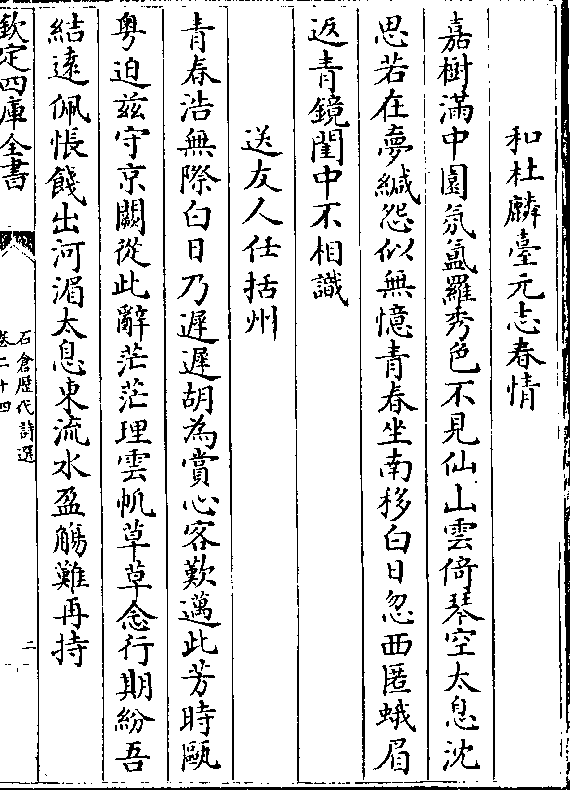 和杜麟臺元志春情
嘉樹滿中園氛氲羅秀色不見仙山雲倚琴空太息沈
思若在夢緘怨似無憶青春坐南移白日忽西匿蛾眉
返青鏡閨中不相識
送友人任括州
青春浩無際白日乃遲遲胡為賞心客歎邁此芳時甌
粤迫兹守京闕從此辭茫茫理雲帆草草念行期紛吾
結遠佩悵餞出河湄太息東流水盈觴難再持
欽定四庫全書
石倉歴代詩選
卷二十四
二